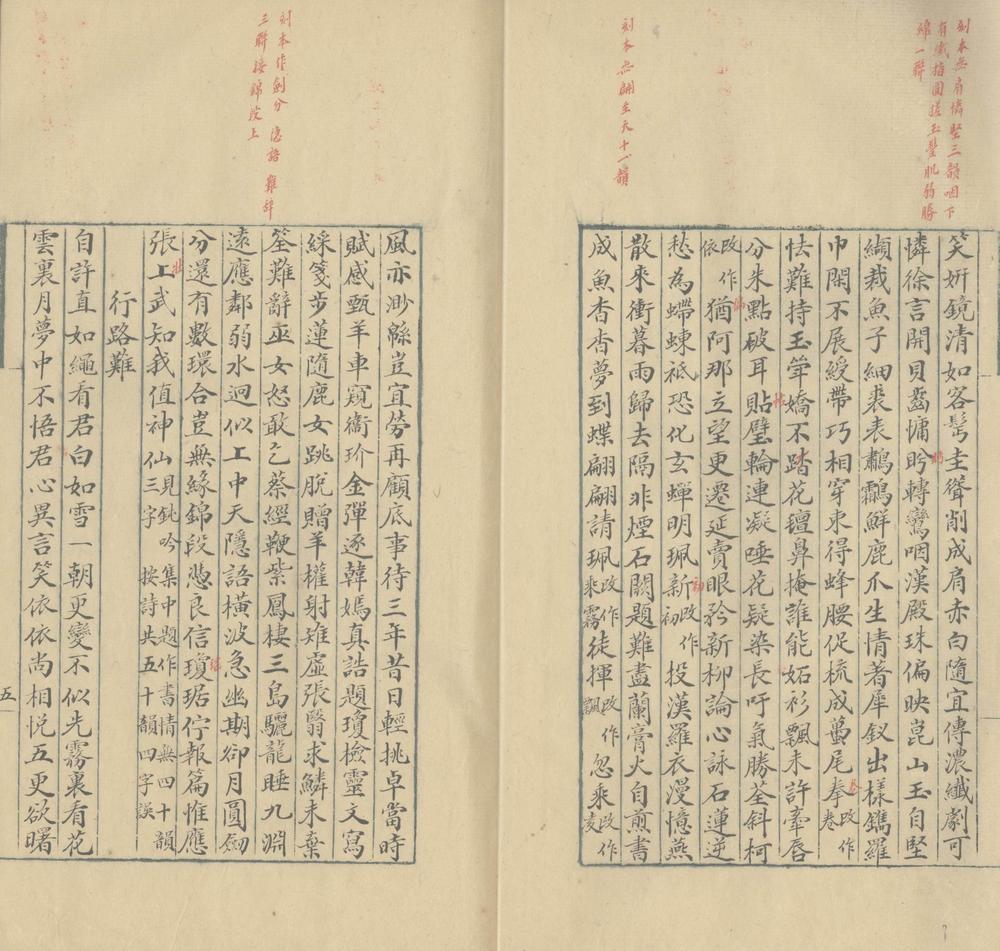 刻本無肩憐堅三韻咽下
有纖指圓搓玉豐肌弱勝
綿一聯
刻本無翩至天十一韻
笑妍鏡清如客髩圭聳削成肩赤白隨宜傳濃纖劇可
憐徐言開貝齒慵盻轉鸞咽漢殿珠偏映崑山玉自堅
纈裁魚子細裘表鸘鸘鮮鹿爪生情著犀釵出樣鐫羅
巾閑不展綬帶巧相穿束得蜂腰促梳成蠆尾拳改作卷
怯難持玉笋嬌不踏花氊鼻掩誰能妬衫飄未許牽唇
分朱點破耳貼璧輪連凝唾花疑染長吁氣勝荃斜柯
改作依猶阿那立望更遷延賣眼矜新柳論心詠石蓮逆
愁為蠕蝀袛恐化玄蟬明珮新改作初投漢羅衣漫憶燕
散來衝暮雨歸去隔非煙石闕題難盡蘭膏火自煎書
成魚杳杳夢到蝶翩翩請珮改作乘霧徒揮改作飄忽乘改作凌
刻本作劍分 隱語 難辭
三聯接錦段上
風亦渺緜豈宜勞再顧底事待三年昔日輕挑卓當時
賦感甄羊車窺衞玠金彈逐韓嫣真誥題瓊檢靈文寫
綵箋步蓮隨鹿女跳脫贈羊權射雉虛張翳求鱗未棄
筌難辭巫女怒敢乞蔡經鞭紫鳳棲三島驪龍睡九淵
遠應鄰弱水迥似工中天隱語橫波急幽期卻月圓劒
分還有數環合豈無緣錦段愁良信瓊琚佇報篇惟應
張工武知我值神仙三字見鈍吟集中題作書情無四十韻按詩共五十韻四字誤
行路難
自許直如繩看君白如雪一朝更變不似先霧裏看花
雲裏月夢中不悟君心異言笑依依尚相悅五更欲曙
五